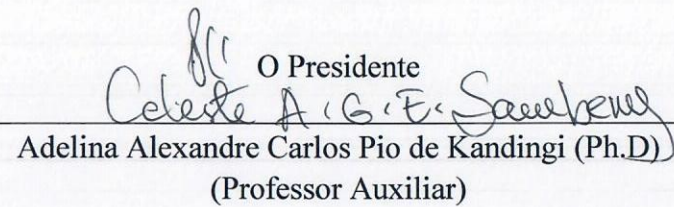 O Presidente
Celeste A. G. E.
Adelina Alexandre Carlos Pio de Kandingi (Ph.D)
(Professor Auxiliar)